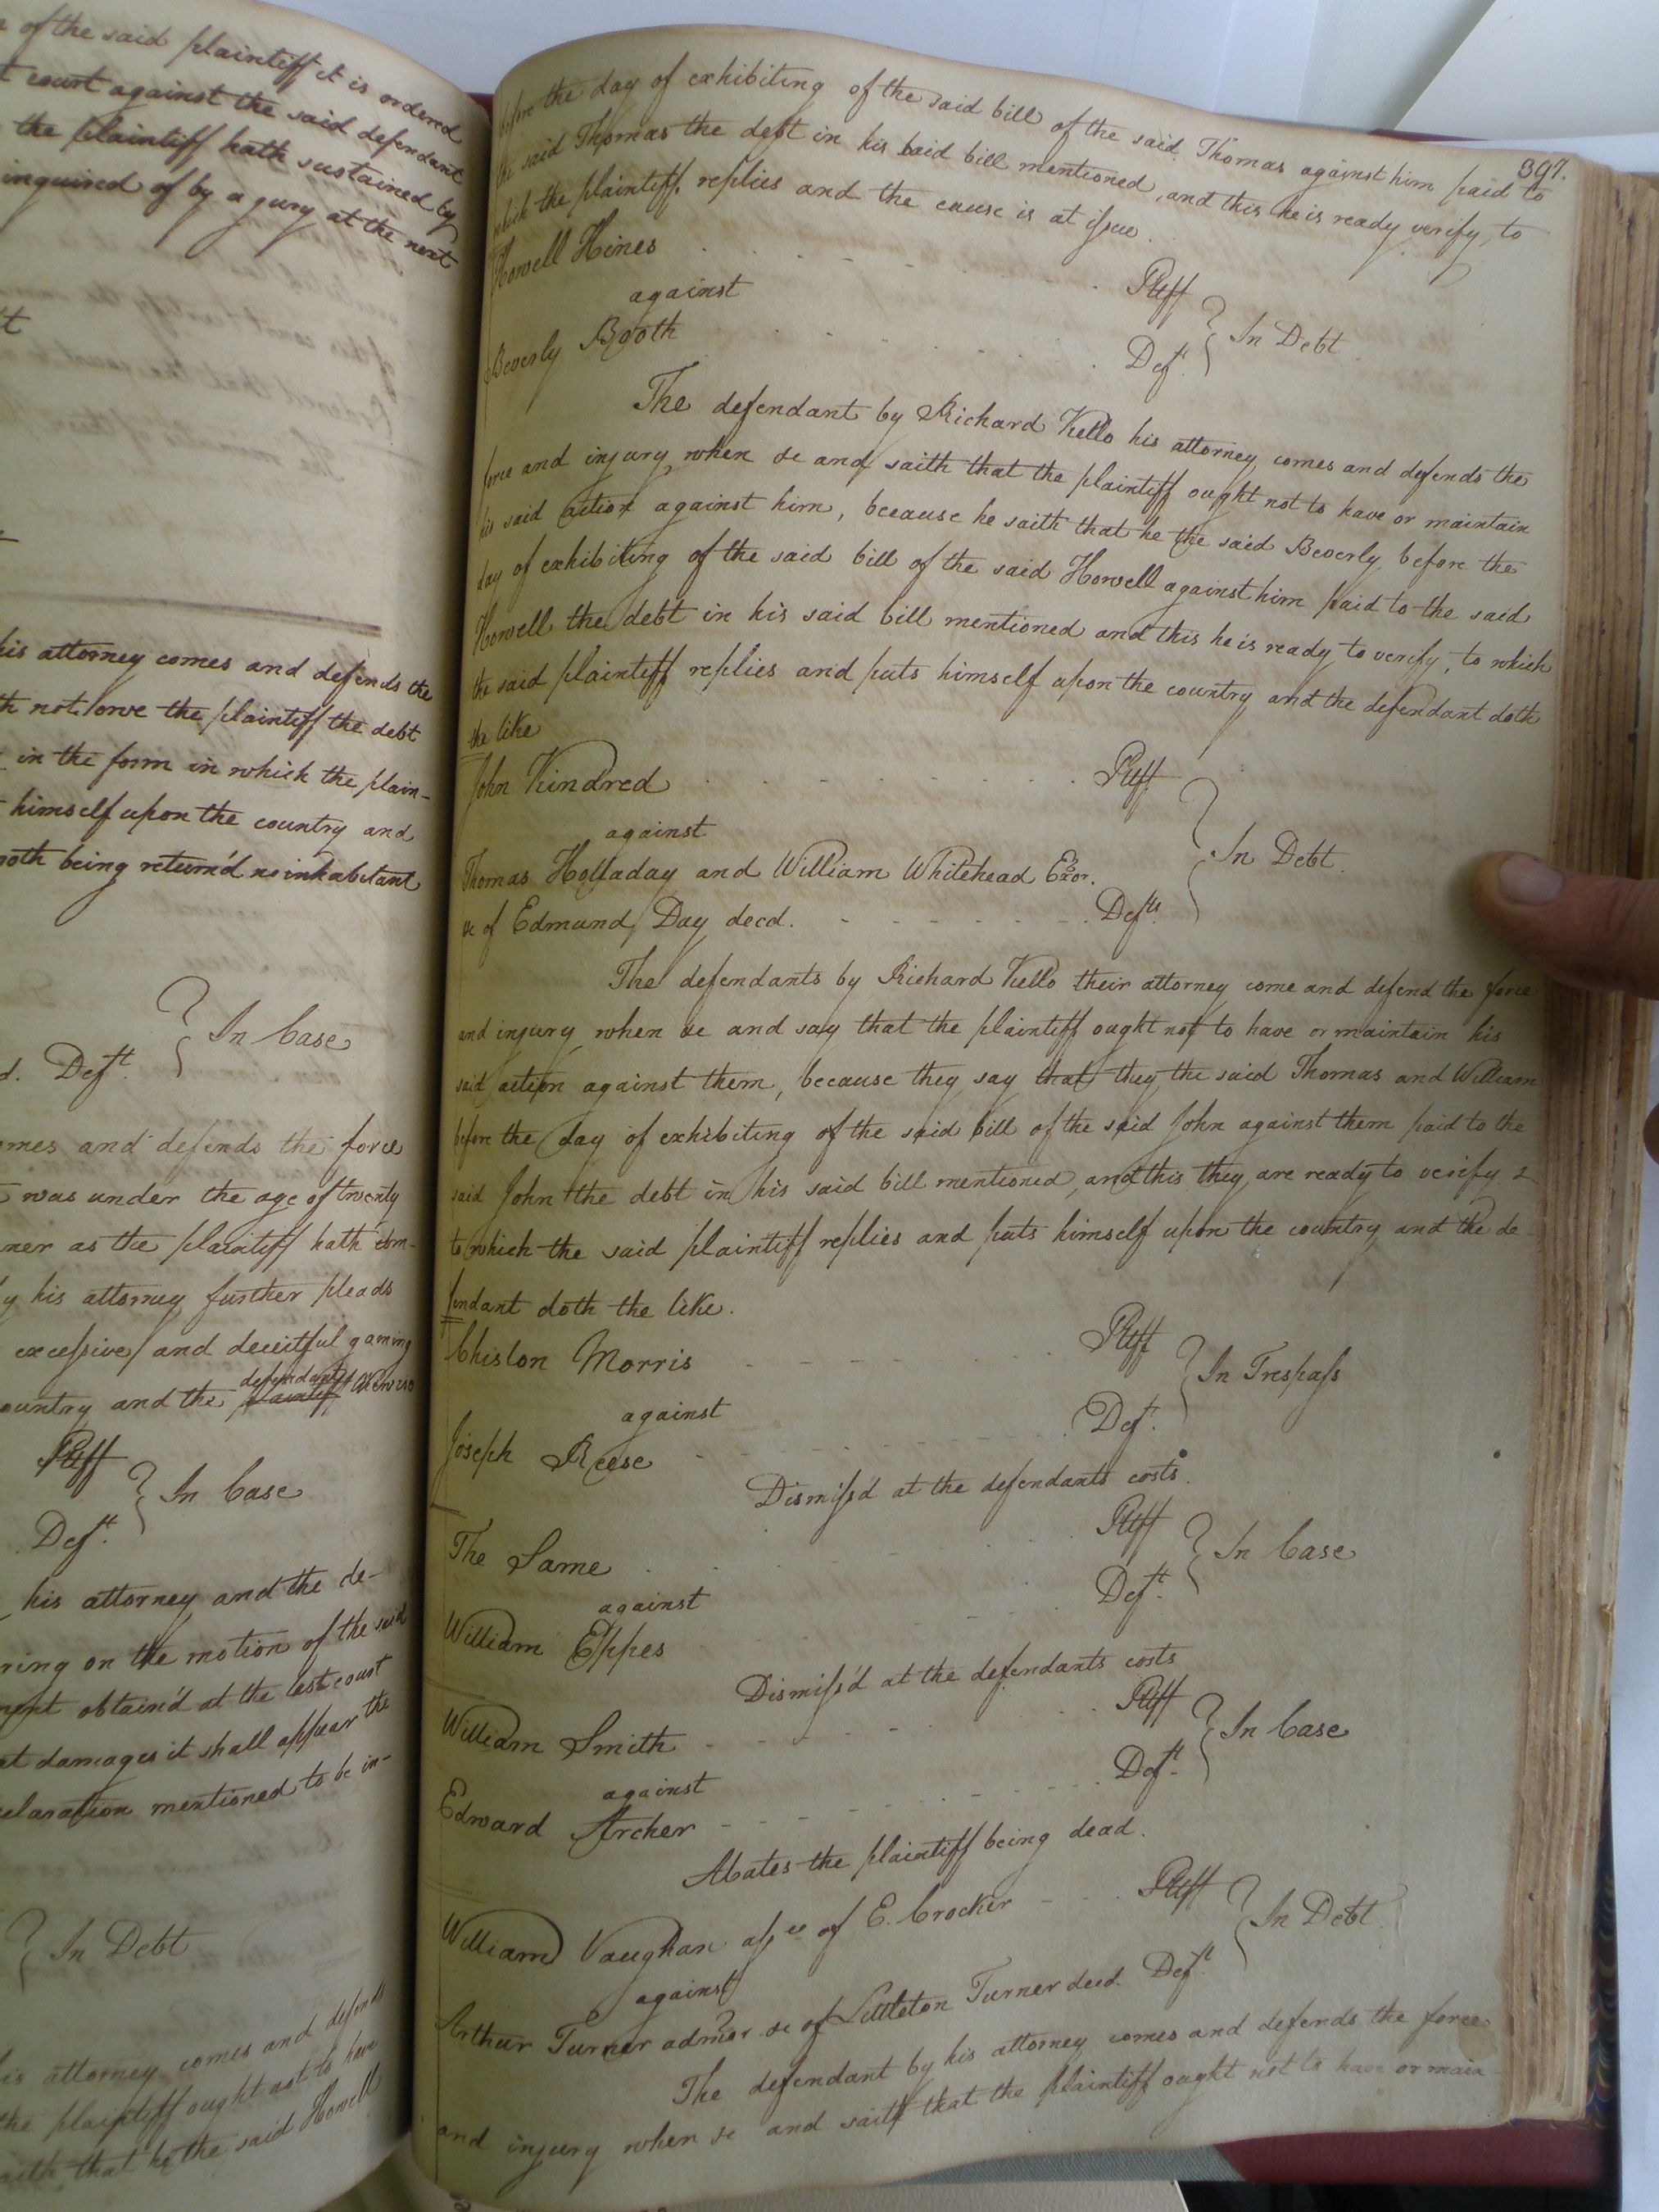 of the said plaintiff it is ordered
court against the said defendant
the plaintiff hath sustained by
inquired of by a jury at the next
his attorney comes and defends the
not owe the plaintiff the debt
in the form in which the plain-
himself upon the country and
being return'd no inhabitant
Deft. } In Case
and defends the force
was under the age of twenty
as the plaintiff hath com-
his attorney further pleads
excessive and deceitful gaming
country and the plaintiff defendant likewise
Pltff
} In Case
Deft.
his attorney and the de-
on the motion of the said
obtain'd at the last court
damages it shall appear the
mentioned to be in-
} In Debt
his attorney comes and defends
the plaintiff ought not to have
that he the said Howell
397.
before the day of exhibiting of the said bill of the said Thomas against him paid to
the said Thomas the debt in his said bill mentioned, and this he is ready verify, to
which the plaintiff replies and the cause is at issue.
Howell Hines Pltff
against } In Debt
Beverly Booth Deft.
The defendant by Richard Kello his attorney comes and defends the
force and injury when &c and saith that the plaintiff ought not to have or maintain
his said action against him, because he saith that he the said Beverly before the
day of exhibiting of the said bill of the said Howell against him paid to the said
Howell the debt in his said bill mentioned and this he is ready to verify, to which
the said plaintiff replies and puts himself upon the country and the defendant doth
the like
John Kindred Pltff
against } In Debt
Thomas Holladay and William Whitehead Exor.
&c of Edmund Day decd. Defts.
The defendants by Richard Kello their attorney come and defend the force
and injury when &c and say that the plaintiff ought not to have or maintain his
said action against them, because they say that they the said Thomas and William
before the day of exhibiting of the said bill of the said John against them paid to the
said John the debt in his said bill mentioned, and this they are ready to verify &
to which the said plaintiff replies and puts himself upon the country and the de-
fendant doth the like.
Chislon Morris Pltff
against } In Trespass
Joseph Reese Deft.
Dismiss'd at the defendants costs.
The Same Pltff
against } In Case
William Eppes Deft.
Dismiss'd at the defendants costs
William Smith Pltff
against } In Case
Edward Archer Deft.
Abates the plaintiff being dead.
William Vaughan assee of E. Crocker Pltff
against } In Debt
Arthur Turner admor. &c of Littleton Turner decd. Deft.
The defendant by his attorney comes and defends the force
and injury when &c and saith that the plaintiff ought not to have or main